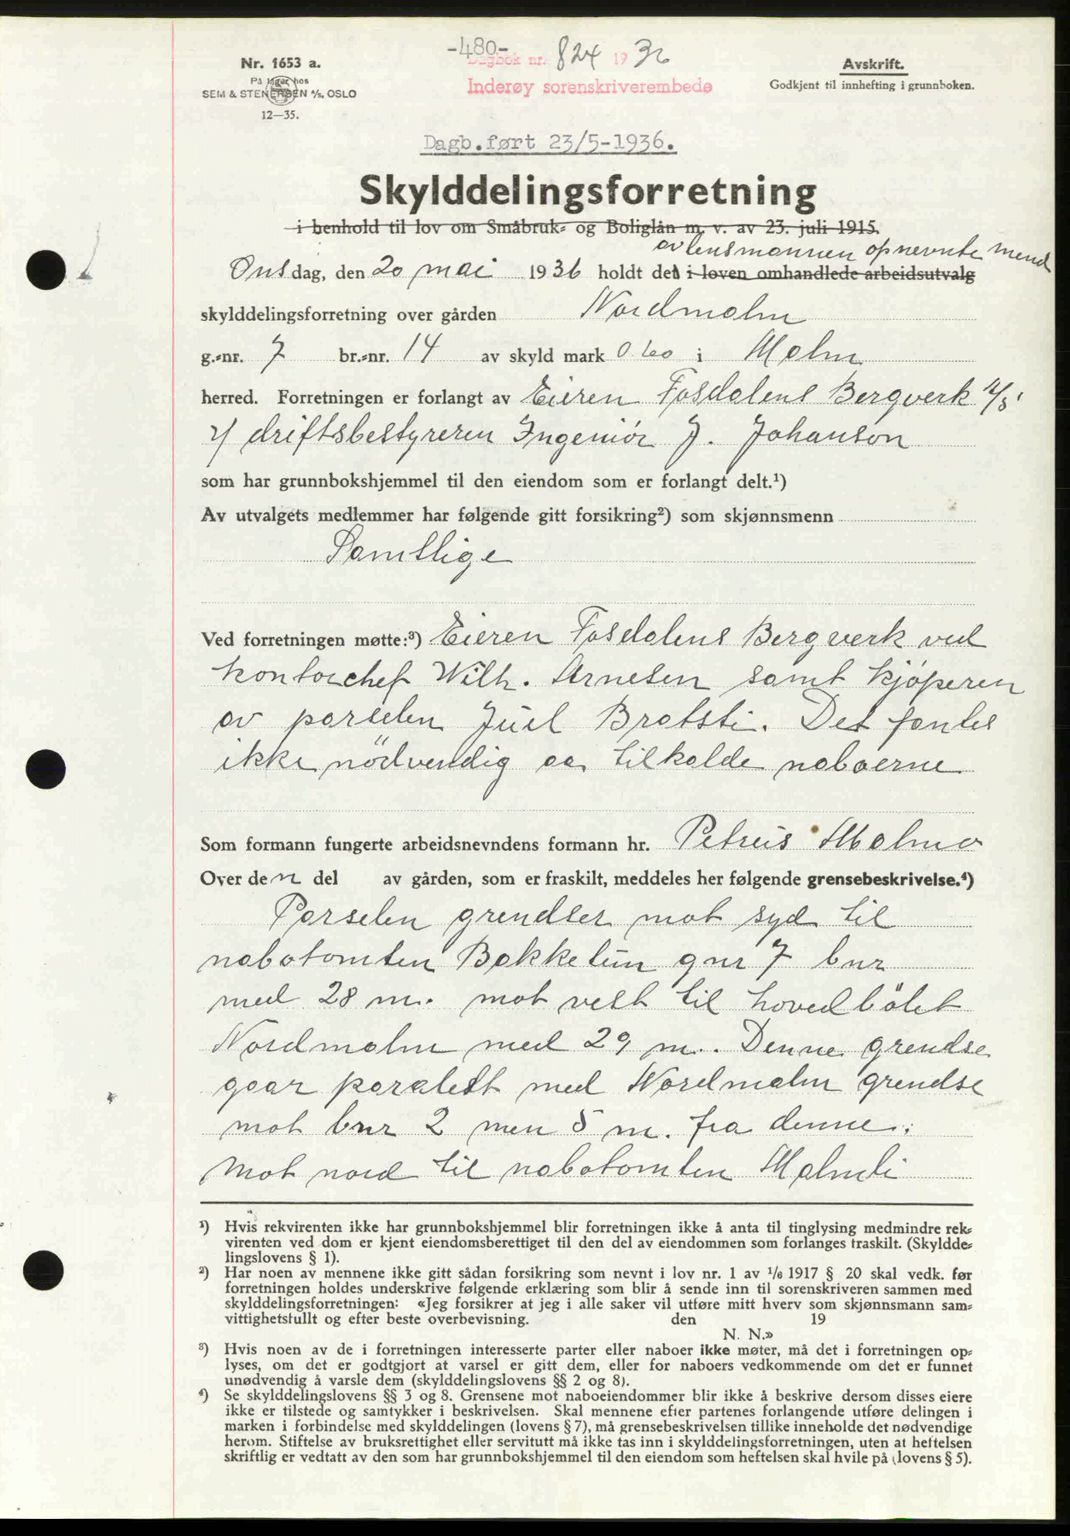 -480-
Nr. 1653 a.
På lager hos
SEM & STENERSEN A/S, OSLO
12—35.
Dagbok nr. 824 1936
Inderøy sorenskriverembede
Avskrift.
Godkjent til innhefting i grunnboken.
Dagb.ført 23/5-1936.
Skylddelingsforretning
i henhold til lov om Småbruk- og Boliglån m. v. av 23. juli 1915.
av lensmannen opnevnte mend
Onsdag, den 20 mai 1936 holdt det i loven omhandlede arbeidsutvalg
skylddelingsforretning over gården Nordmalm
g.-nr. 7 br.-nr. 14 av skyld mark 0 60 i Malm
herred. Forretningen er forlangt av Eieren Fosdalens Bergverk A/S
v/ driftsbestyreren Ingeniör J. Johanson
som har grunnbokshjemmel til den eiendom som er forlangt delt.¹)
Av utvalgets medlemmer har følgende gitt forsikring²) som skjønnsmenn
Samtlige
Ved forretningen møtte:³) Eieren Fosdalens Bergverk ved
kontorchef Wilh. Arnesen samt kjöperen
av parselen Juel Bratsti. Det fantes
ikke nödvendig aa tilkalde naboerne
Som formann fungerte arbeidsnevndens formann hr. Petrus Malmo
Over den del av gården, som er fraskilt, meddeles her følgende grensebeskrivelse.⁴)
Parselen grendser mot syd til
nabotomten Bakketun gnr 7 bnr
med 28 m. mot vest til hovedbölet
Nordmalm med 29 m. Denne grendse
gaar paralelt med Nordmalm grendse
mot bnr 2 men 5 m. fra denne.
Mot nord til nabotomten Malmli
¹) Hvis rekvirenten ikke har grunnbokshjemmel blir forretningen ikke å anta til tinglysing medmindre rek-
virenten ved dom er kjent eiendomsberettiget til den del av eiendommen som forlanges fraskilt. (Skyldde-
lingslovens § 1).
²) Har noen av mennene ikke gitt sådan forsikring som nevnt i lov nr. 1 av 1/6 1917 § 20 skal vedk. før
forretningen holdes underskrive følgende erklæring som blir å sende inn til sorenskriveren sammen med
skylddelingsforretningen: «Jeg forsikrer at jeg i alle saker vil utføre mitt hverv som skjønnsmann sam-
vittighetsfullt og efter beste overbevisning. den 19
N. N.»
³) Hvis noen av de i forretningen interesserte parter eller naboer ikke møter, må det i forretningen op-
lyses, om det er godtgjort at varsel er gitt dem, eller for naboers vedkommende om det er funnet
unødvendig å varsle dem (skylddelingslovens §§ 2 og 8).
⁴) Se skylddelingslovens §§ 3 og 8. Grensene mot naboeiendommer blir ikke å beskrive dersom disses eiere
ikke er tilstede og samtykker i beskrivelsen. Skal mennene efter partenes forlangende utføre delingen i
marken i forbindelse med skylddelingen (lovens § 7), må grensebeskrivelsen tillike inneholde det nødvendige
herom. Stiftelse av bruksrettighet eller servitutt må ikke tas inn i skylddelingsforretningen, uten at heftelsen
skriftlig er vedtatt av den som har grunnbokshjemmel til den eiendom som heftelsen skal hvile på (lovens § 5).